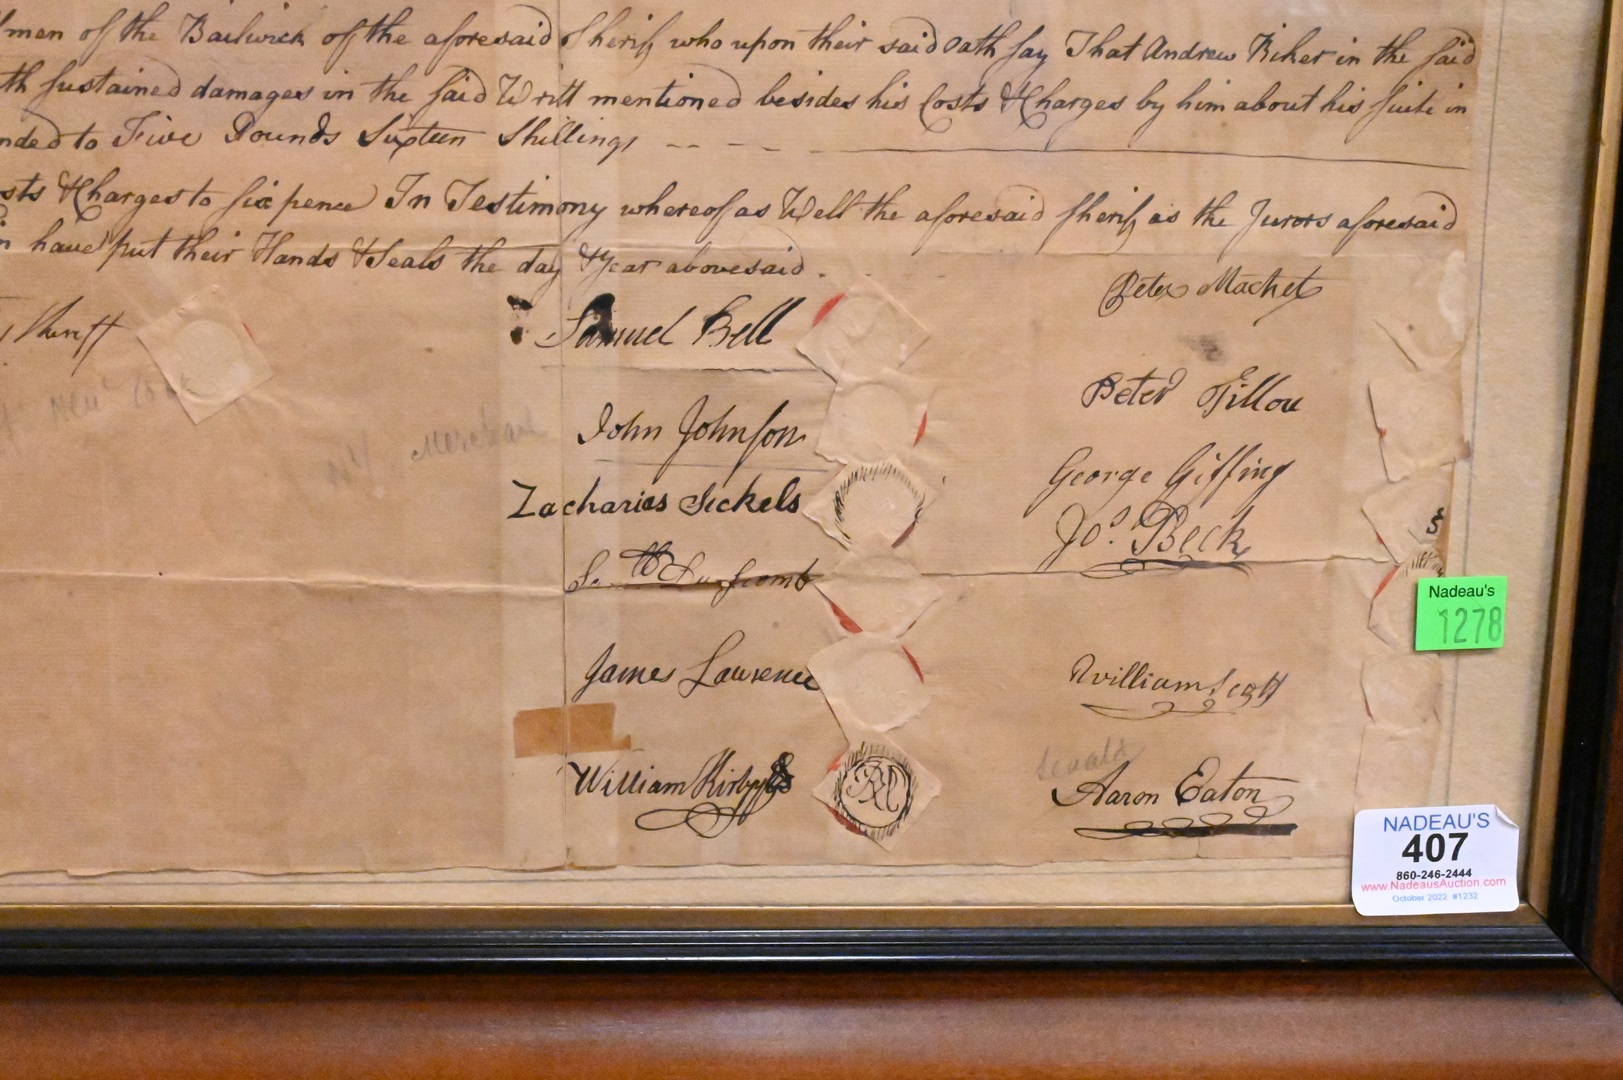 men of the Bailwick of the aforesaid Sherif who upon their said Oath say That Andrew Riker in the said
th sustained damages in the said Writt mentioned besides his Costs & Charges by him about his suite in
nded to Five Pounds Sixteen Shillings
sts & Charges to six pence In Testimony whereof as Well the aforesaid Sherif as the Jurors aforesaid
have put their Hands & Seals the day & Year abovesaid.
Sheriff
Samuel Bell
Peter Macket
New York
John Johnson
Peter Tillou
NY Merchant
Zacharias Sickels
George Giffing
Jos. Beck
James Lawrence
William Scott
William Kirby
Aaron Eaton
Nadeau's
1278
NADEAU'S
407
860-246-2444
www.NadeausAuction.com
October 2022 #1232